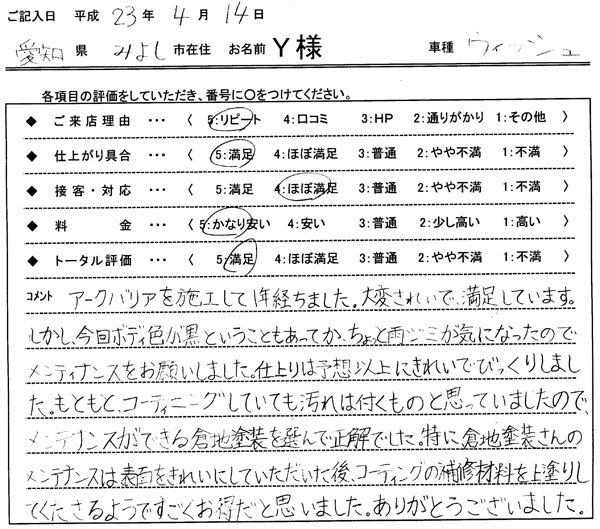 ご記入日 平成 23年 4月 14日
愛知県 みよし市在住 お名前 Y様 車種 ウィッシュ
各項目の評価をしていただき、番号に○をつけてください。
◆ ご来店理由 ・・・ 〈 5:リピート 4:口コミ 3:HP 2:通りがかり 1:その他 〉
◆ 仕上がり具合 ・・・ 〈 5:満足 4:ほぼ満足 3:普通 2:やや不満 1:不満 〉
◆ 接客・対応 ・・・ 〈 5:満足 4:ほぼ満足 3:普通 2:やや不満 1:不満 〉
◆ 料金 ・・・ 〈 5:かなり安い 4:安い 3:普通 2:少し高い 1:高い 〉
◆ トータル評価 ・・・ 〈 5:満足 4:ほぼ満足 3:普通 2:やや不満 1:不満 〉
コメント アークバリアを施工して1年経ちました。大変きれいで、満足しています。
しかし、今回ボディ色が黒ということもあってか、ちょっと雨ジミが気になったので
メンティナンスをお願いしました。仕上りは予想以上にきれいでびっくりしまし
た。もともと、コーティニングしていても汚れは付くものと思っていましたので、
メンテナンスができる倉地塗装を選んで正解でした。特に倉地塗装さんの
メンテナンスは表面をきれいにしていただいた後、コーティングの補修材料を上塗りし
てくださるようですごくお得だと思いました。ありがとうございました。